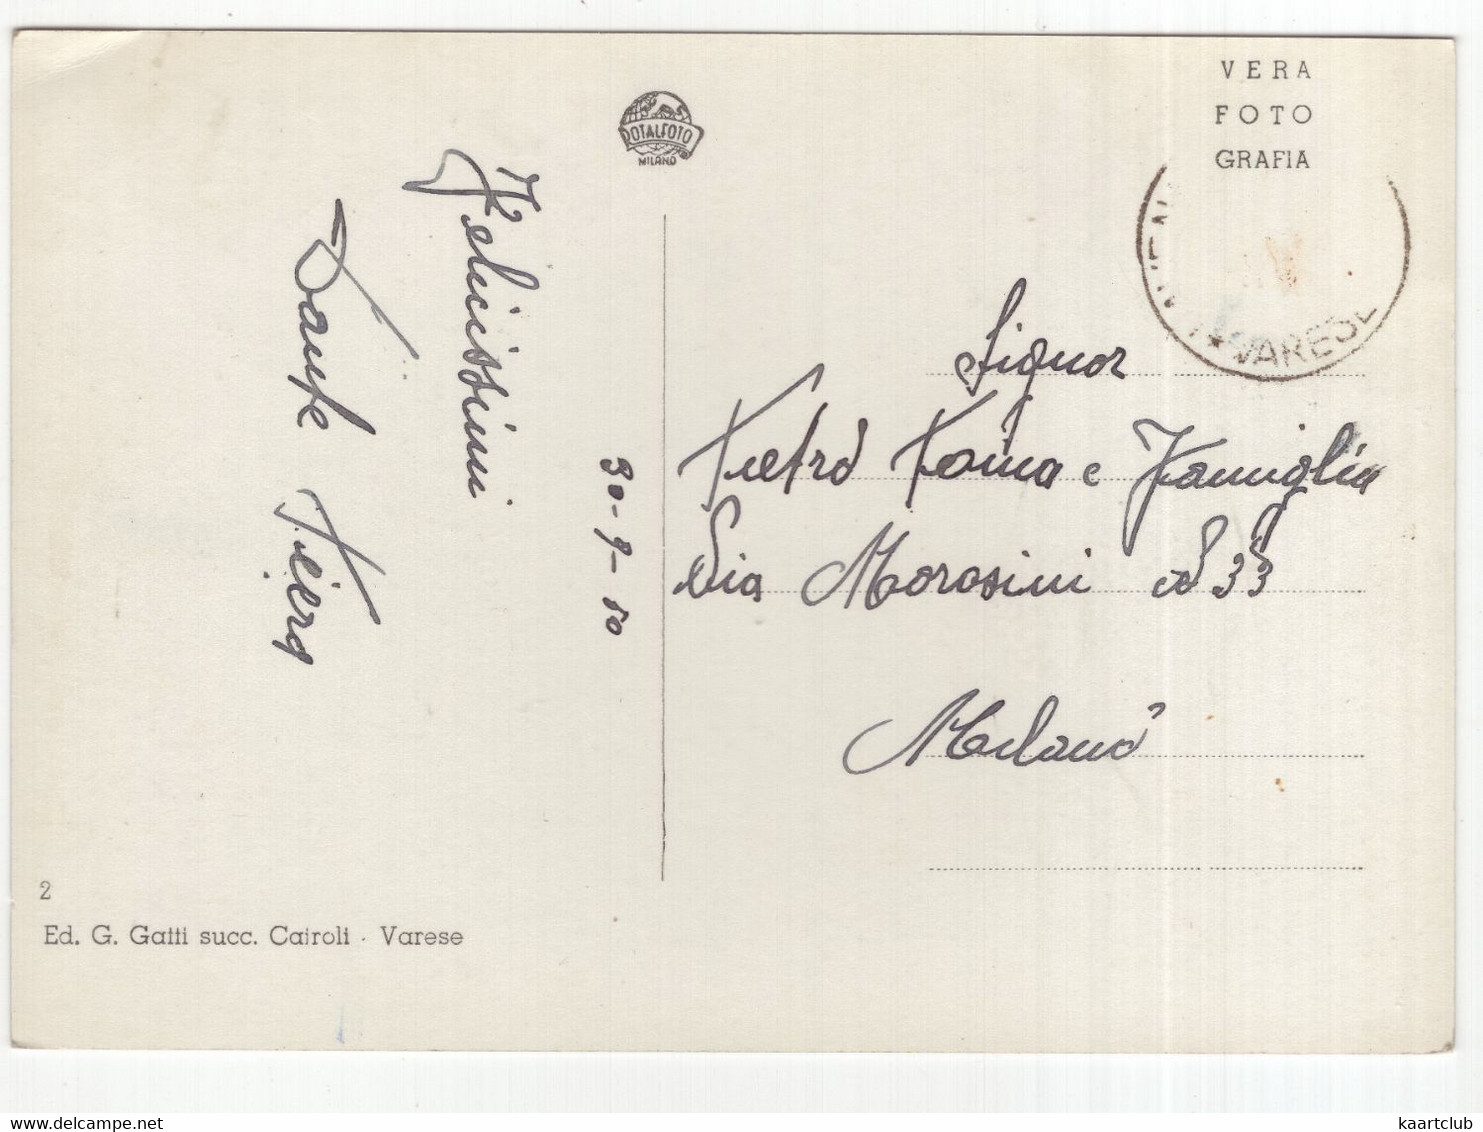 VERA
FOTO
GRAFIA
DOTALFOTO
MILANO
VARESE
Felicissimi
Piera
30-9-50
Signor
Pietro e Famiglia
Via Morosini 33
Milano
2
Ed. G. Gatti succ. Cairoli - Varese
kaartclub